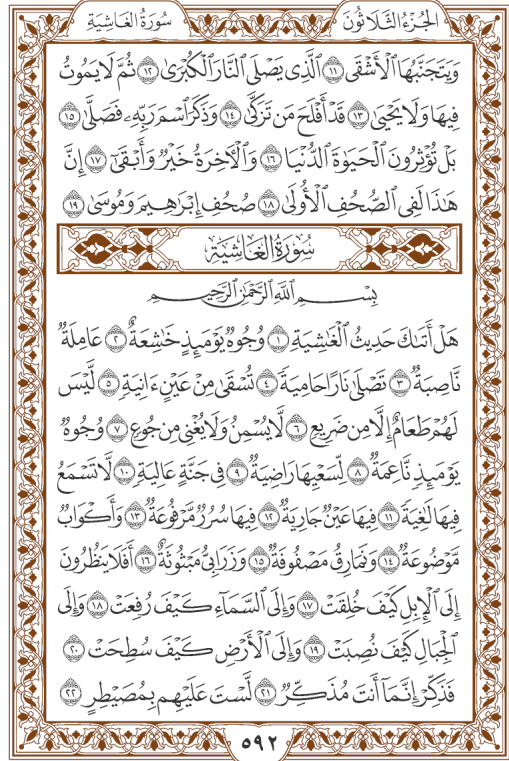 الجُزْءُ الثَّلَاثُونَ سُورَةُ الغَاشِيَةِ
وَيَتَجَنَّبُهَا الْأَشْقَى ١١ الَّذِي يَصْلَى النَّارَ الْكُبْرَىٰ ١٢ ثُمَّ لَا يَمُوتُ
فِيهَا وَلَا يَحْيَىٰ ١٣ قَدْ أَفْلَحَ مَن تَزَكَّىٰ ١٤ وَذَكَرَ اسْمَ رَبِّهِ فَصَلَّىٰ ١٥
بَلْ تُؤْثِرُونَ الْحَيَوٰةَ الدُّنْيَا ١٦ وَالْآخِرَةُ خَيْرٌ وَأَبْقَىٰ ١٧ إِنَّ
هَٰذَا لَفِي الصُّحُفِ الْأُولَىٰ ١٨ صُحُفِ إِبْرَاهِيمَ وَمُوسَىٰ ١٩
سُورَةُ الغَاشِيَةِ
بِسْمِ اللَّهِ الرَّحْمَٰنِ الرَّحِيمِ
هَلْ أَتَىٰكَ حَدِيثُ الْغَٰشِيَةِ ١ وُجُوهٌ يَوْمَئِذٍ خَٰشِعَةٌ ٢ عَامِلَةٌ
نَّاصِبَةٌ ٣ تَصْلَىٰ نَارًا حَامِيَةً ٤ تُسْقَىٰ مِنْ عَيْنٍ ءَانِيَةٍ ٥ لَّيْسَ
لَهُمْ طَعَامٌ إِلَّا مِن ضَرِيعٍ ٦ لَّا يُسْمِنُ وَلَا يُغْنِي مِن جُوعٍ ٧ وُجُوهٌ
يَوْمَئِذٍ نَّاعِمَةٌ ٨ لِّسَعْيِهَا رَاضِيَةٌ ٩ فِي جَنَّةٍ عَالِيَةٍ ١٠ لَّا تَسْمَعُ
فِيهَا لَٰغِيَةً ١١ فِيهَا عَيْنٌ جَارِيَةٌ ١٢ فِيهَا سُرُرٌ مَّرْفُوعَةٌ ١٣ وَأَكْوَابٌ
مَّوْضُوعَةٌ ١٤ وَنَمَارِقُ مَصْفُوفَةٌ ١٥ وَزَرَابِيُّ مَبْثُوثَةٌ ١٦ أَفَلَا يَنظُرُونَ
إِلَى الْإِبِلِ كَيْفَ خُلِقَتْ ١٧ وَإِلَى السَّمَاءِ كَيْفَ رُفِعَتْ ١٨ وَإِلَى
الْجِبَالِ كَيْفَ نُصِبَتْ ١٩ وَإِلَى الْأَرْضِ كَيْفَ سُطِحَتْ ٢٠
فَذَكِّرْ إِنَّمَا أَنتَ مُذَكِّرٌ ٢١ لَّسْتَ عَلَيْهِم بِمُصَيْطِرٍ ٢٢
٥٩٢